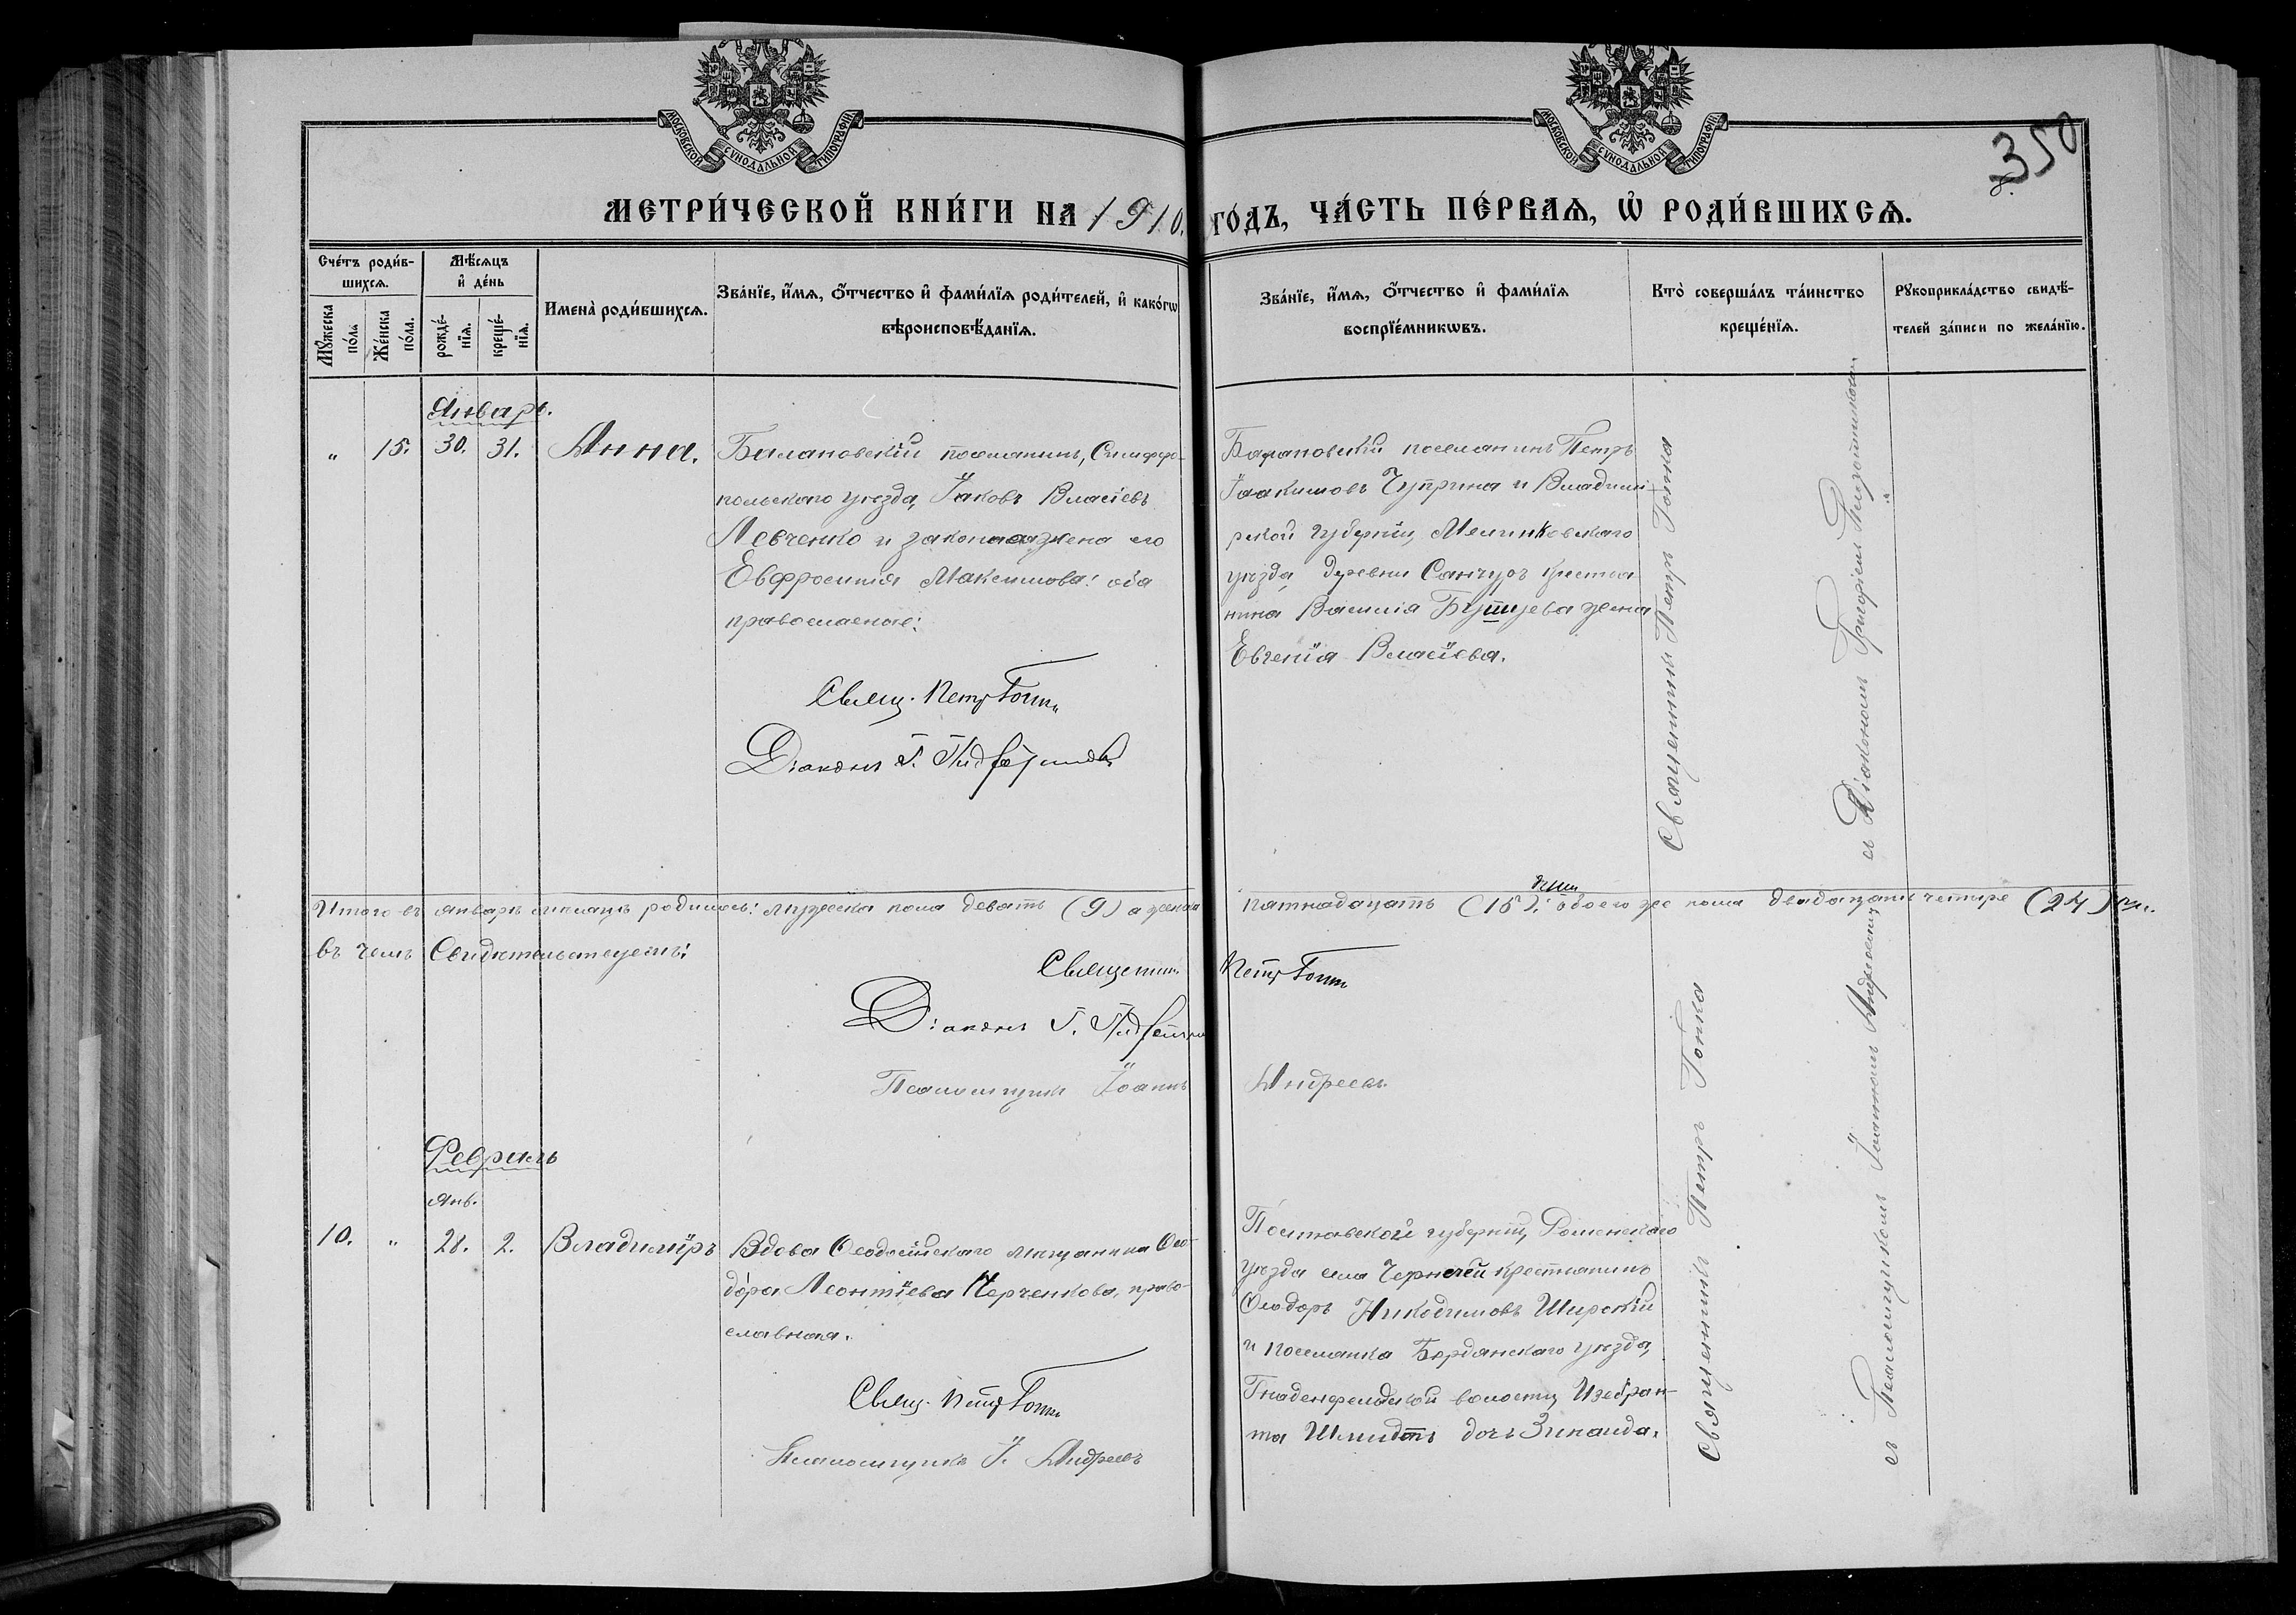 МОСКОВСКОЙ СУНОДАЛЬНОЙ ТИПОГРАФІИ
МОСКОВСКОЙ СУНОДАЛЬНОЙ ТИПОГРАФІИ
350
МЕТРИ́ЧЕСКОЙ КНИ́ГИ НА 1910. ГО́ДЪ, ЧА́СТЬ ПЕ́РВАѦ, Ѡ РОДИ́ВШИХСѦ.
Сче́тъ роди́в-
шихсѧ.
Мꙋжеска по́ла
Же́нска по́ла.
Мѣ́сѧцъ
и҆ де́нь
рожде́-
нїѧ.
креще́-
нїѧ.
Имена̀ роди́вшихсѧ.
Зва́нїе, и҆́мѧ, ѻ҆́тчество и҆ фами́лїѧ роди́телей, и҆ како́гѡ
вѣроисповѣ́данїѧ.
Зва́нїе, и҆́мѧ, ѻ҆́тчество и҆ фами́лїѧ
воспрїе́мникѡвъ.
Кто̀ соверша́лъ та́инство
креще́нїѧ.
Рꙋкоприкла́дство свидѣ́-
телей за́писи по жела́нїю.
Январь.
" 15. 30. 31. Анна.
поселянинъ, Симферо-
польскаго уѣзда, Іаковъ Власіевъ
Левченко и законная жена его
Евфросинія Максимова: оба
православные:
Свящ. Петръ Гопка
Діаконъ Г.
поселянинъ Петръ
Іоакимовъ Чуприна и Владимі-
рской губерніи, Меленковскаго
уѣзда, деревни Санчуръ крестья-
нина Василія жена
Евгенія Власіева.
Священникъ Петръ Гопка
съ Діакономъ Григоріемъ
Итого въ январѣ мѣсяцѣ родилось: мужеска пола девять (9) а женска пятнадцать (15): обоего же пола двадцать четыре (24)
въ чемъ Свидѣтельствуемъ:
Священникъ Петръ Гопка
Діаконъ Г.
Псаломщикъ Іоаннъ Андреевъ.
Февраль
Янв.
10. " 28. 2. Владиміръ
Вдова Ѳеодосійскаго мѣщанина Ѳео-
дора Леонтіева право-
славная.
Свящ. Петръ Гопка
Псаломщикъ І. Андреевъ
Полтавской губерніи, Роменскаго
уѣзда села Чернечей крестьянинъ
Ѳеодоръ Никодимовъ Широкій
и поселянка Бердянскаго уѣзда,
Гнаденфельдской волости, Изебран-
та Шмидтъ дочь Зинаида.
Священникъ Петръ Гопка
съ Псаломщикомъ Іоанномъ Андреевымъ